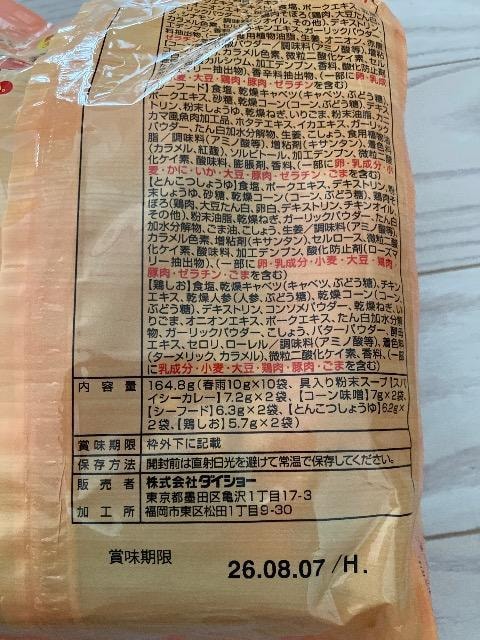 オイル、その他)、デキストリン、
調味料(アミノ酸等)、増粘
(一部に卵・乳成
麦・大豆・鶏肉・豚肉・ゼラチンを含む)
【シーフード】食塩、乾燥キャベツ(キャベツ、ぶどう糖)、
ポークエキス、砂糖、乾燥コーン(コーン、ぶどう糖)、デキス
トリン、粉末しょうゆ、乾燥ねぎ、いりごま、粉末油脂、カニ
カマ風魚肉加工品、ホタテエキス、イカエキス、ガーリック
パウダー、たん白加水分解物、生姜、こしょう、食用植物油
脂/調味料(アミノ酸等)、増粘剤(キサンタン)、着色料
(カラメル、紅麹)、ソルビトール、加工デンプン、微粒二酸
化ケイ素、酸味料、膨脹剤、香料、(一部に卵・乳成分・小
麦・かに・いか・大豆・豚肉・ゼラチン・ごまを含む)
【とんこつしょうゆ】食塩、ポークエキス、デキストリン、粉
末しょうゆ、砂糖、乾燥コーン(コーン、ぶどう糖)、鶏肉そ
ぼろ(鶏肉、大豆たん白、卵白、デキストリン、チキンオイル、
その他)、粉末油脂、乾燥ねぎ、ガーリックパウダー、たん白
加水分解物、ごま油、こしょう、生姜/調味料(アミノ酸等)、
カラメル色素、増粘剤(キサンタン)、セルロース、微粒二酸
化ケイ素、酸味料、加工デンプン、酸化防止剤(ローズマ
リー抽出物)、(一部に卵・乳成分・小麦・大豆・鶏肉・
豚肉・ゼラチン・ごまを含む)
【鶏しお】食塩、乾燥キャベツ(キャベツ、ぶどう糖)、チキン
エキス、乾燥人参(人参、ぶどう糖)、乾燥コーン(コーン、
ぶどう糖)、デキストリン、コンソメパウダー、乾燥ねぎ、い
りごま、オニオンエキス、ポークエキス、たん白加水分解
物、ガーリックパウダー、こしょう、バターパウダー、酵母
エキス、セロリ、ローレル/調味料(アミノ酸等)、着色料
(ターメリック、カラメル)、微粒二酸化ケイ素、香料、(一部
に乳成分・小麦・大豆・鶏肉・豚肉・ごまを含む)
内容量 164.8g(春雨10g×10袋、具入り粉末スープ【スパ
イシーカレー】7.2g×2袋、【コーン味噌】7g×2袋、
【シーフード】6.3g×2袋、【とんこつしょうゆ】6.2g×
2袋、【鶏しお】5.7g×2袋)
賞味期限 枠外下に記載
保存方法 開封前は直射日光を避けて常温で保存してください。
販売者 株式会社ダイショー
東京都墨田区亀沢1丁目17-3
加工所 福岡市東区松田1丁目9-30
賞味期限 26.08.07/H.